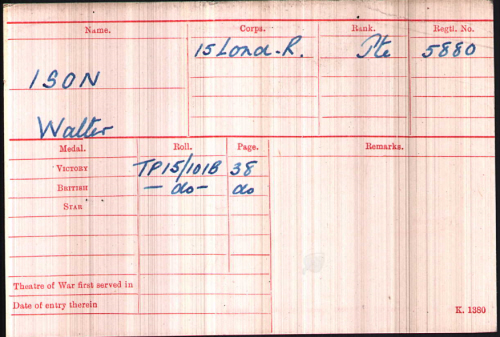 Name. Corps. Rank. Regtl. No.
15 Lond. R. Pte 5880
ISON
Walter
Medal. Roll. Page. Remarks.
VICTORY TP15/101B 38
BRITISH — do — do
STAR
Theatre of War first served in
Date of entry therein
K. 1380